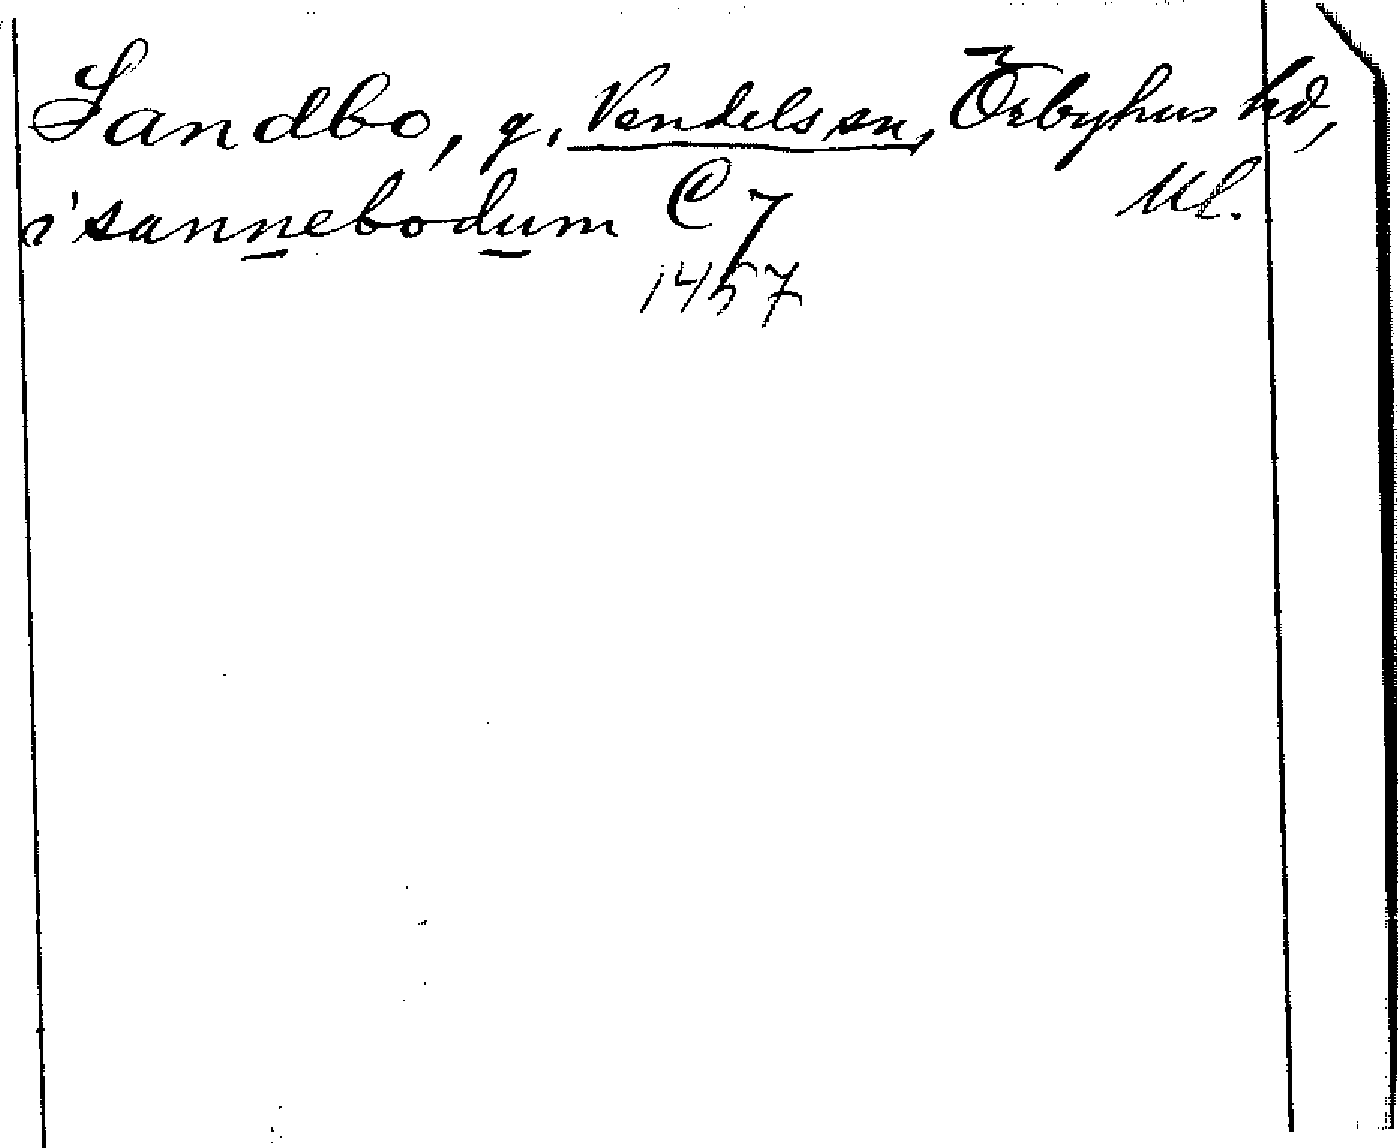 Sandbo, g. Vendels sn, Örbyhus hd,
i sannebodum C7 Ul.
1457